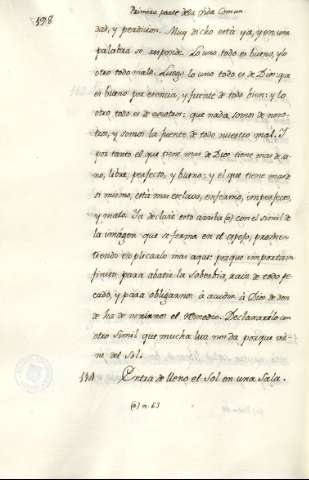 198
Primera parte dela vida Comun
dad, y perdicion. Muy dicho está ya, y en una
palabra se suponde. Lo uno todo es bueno, y lo
otro todo malo. Luego lo uno todo es de Dios: que
es bueno por esencia, y fuente de todo bien: y lo
otro, todo es de nosotros: que nada somos de noso-
tros, y somos la fuente de todo nuestro mal. Y
por tanto el que tiene mas de Dios, tiene mas de sa-
no, libre, perfecto, y bueno: y el que tiene mas de
si mismo, está mas esclavo, enfermo, imperfecto,
y malo. Ya declaré esto arriba (a) con el simil de
la imágen que se forma en el espejo, prome-
tiendo explicarlo mas aqui: porque importa in
finito para abatir la soberbia, raiz de todo pe-
cado, y para obligarnos à acudir à Dios de don
de ha de venirnos el remedio. Declararélo con
otro simil que mucha luz nos da porque vie-
ne del Sol.
Entra de lleno el Sol en una Sala.
(a) n. 63